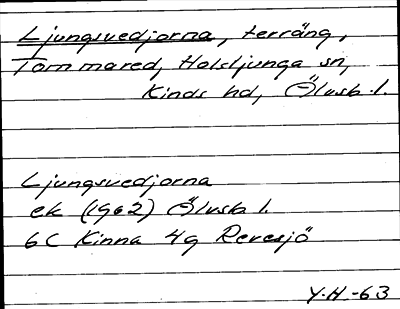 Ljungsvedjorna, terräng,
Tommared, Holsljunga sn,
Kinds hd, Älvsb. l.
Ljungsvedjorna
ek (1962) Älvsb l.
6C Kinna 4g Revesjö
Y.H. -63